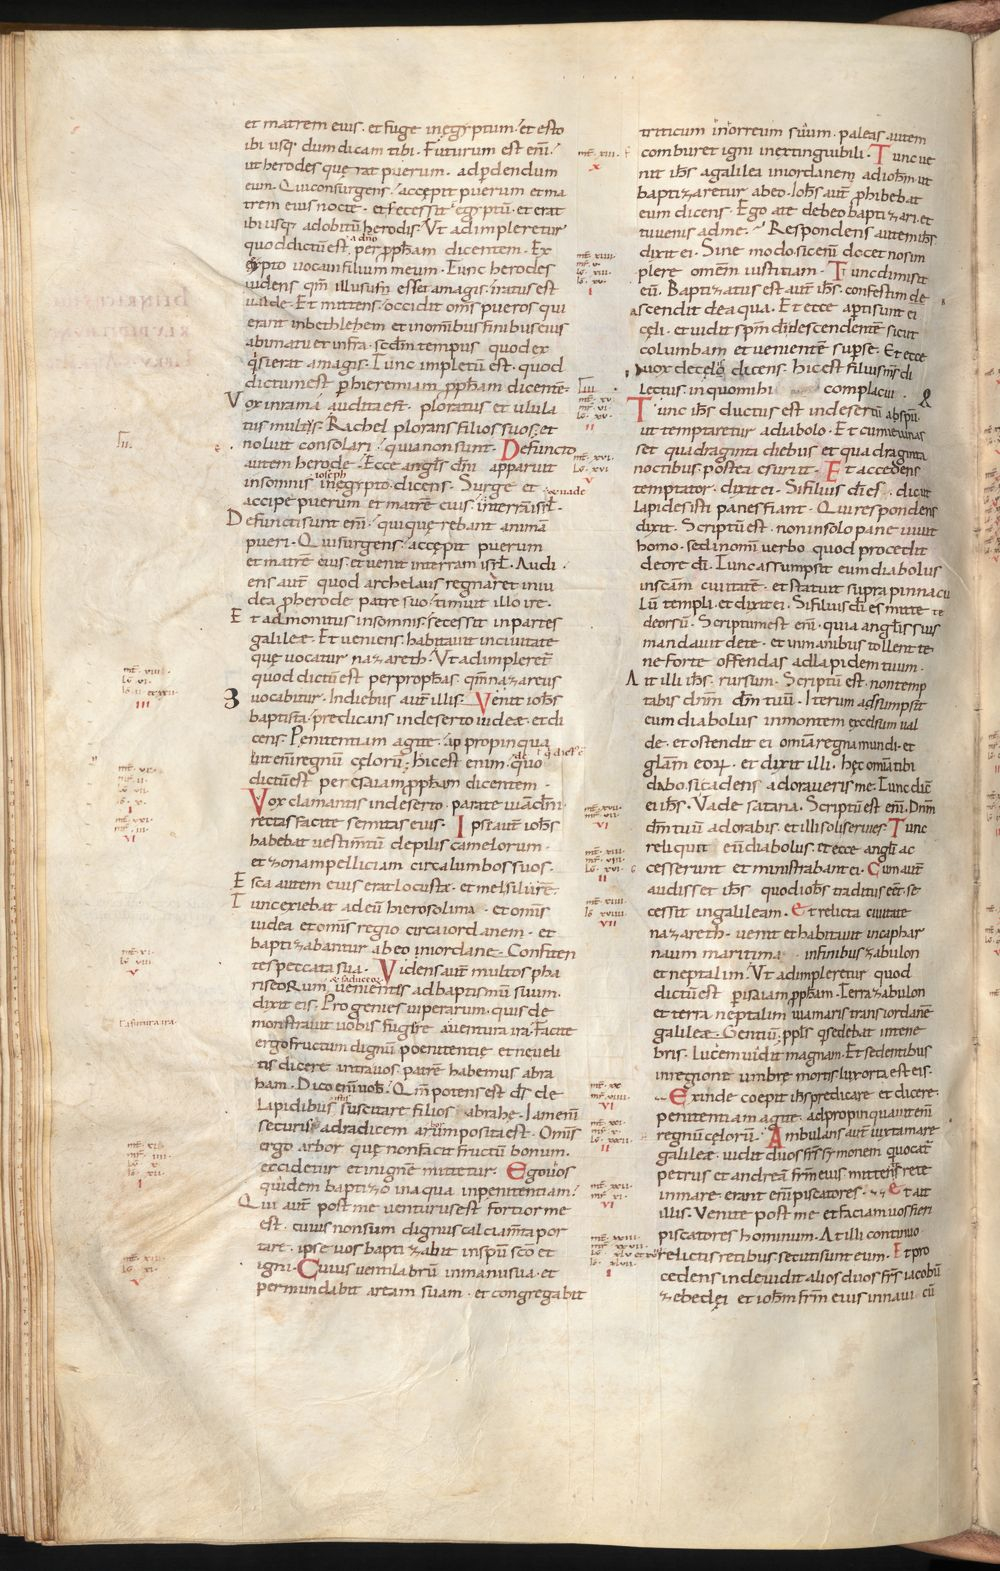 et matrem eius · et fuge in egyptum · et esto
ibi usq; dum dicam tibi · Futurum est eni̅ ·
ut herodes querat puerum · ad p̲dendum
eum · Qui consurgens · accepit puerum et ma
trem eius nocte · et secessit egyptu̅ · et erat
ibi usq; ad obitu̅ herodis · Ut adimpleretur
quod dictu̅ est a dn̅o per pp̅ham dicentem · Ex
egypto vocaui filium meum · Tunc herodes
uidens qm̅ illusum esset a magis · iratus est
ualde · Et mittens · occidit om̅s pueros qui
erant in bethlehem et in omib; finibus eius
a bimatu et infra · scdm̅ tempus quod ex
q̇sierat a magis · Tunc impletu̅ est · quod
dictum est p̲ hieremiam pp̅ham dicente̅ ·
Vox in rama audita est · ploratus et ulula
tus multus · Rachel plorans filios suos · et
noluit consolari · quia non sunt · Defuncto
autem herode · Ecce angl̅s dn̅i apparuit
in somnis ioseph in egypto dicens · Surge et
accipe puerum et matre̅ eius · et uade in terra̅ isrl̅ ·
Defuncti sunt eni̅ · qui querebant anima̅
pueri · Qui surgens · accepit puerum
et matre̅ eius · et uenit in terram isrl̅ · Audi
ens aut̅ quod archelaus regnaret in iu
dea p̲ herode patre suo · timuit illo ire ·
Et admonitus in somnis · secessit in partes
galileæ · Et ueniens · habitauit in ciuitate
que uocatur nazareth · Ut adimpleret̅
quod dictu̅ est per prophas · qm̅ nazareus
uocabitur · In diebus aut̅ illis · Venit ioh̅s
baptista · predicans in deserto iudeæ · et di
cens · Penitentiam agite · appropinqua
bit eni̅ regnu̅ celoru̅ · hic est enim de quo
dictu̅ est per esaiam pp̅ham dicentem ·
Vox clamantis in deserto · parate uia̅ dn̅i ·
rectas facite semitas eius · Ipse aut̅ ioh̅s
habebat uestim̅tu̅ de pilis camelorum ·
et zonam pelliciam circa lumbos suos ·
Esca autem eius erat locusta · et mel siluestre ·
Tunc exiebat ad eu̅ hierosolima · et omis
iudea et omis regio circa iordanem · et
baptizabantur ab eo in iordane · Confiten
tes peccata sua · Videns aut̅ multos pha
riseoRum et saduceor̅ uenientes ad baptismu̅ suum ·
dixit eis · Progenies uiperarum · quis de
monstrauit uobis fugere a uentura ira · Facite
ergo fructum dignu̅ poenitentie et ne ueli
tis dicere intra uos · patre̅ habemus abra
ham · Dico eni̅ uob̅ · Qm̅ potens est ds̅ de
lapidibus istis suscitare filios abrahe · Iam eni̅
securis ad radicem arborum posita est · Omis
ergo arbor que non facit fructu̅ bonum ·
excidetur et in igne̅ mittetur · Ego uos
quidem baptizo in aqua in penitentiam ·
Qui aut̅ post me uenturus est fortior me
est · cuius non sum dignus calciam̅ta por
tare · ipse uos baptizabit in spu̅ sco̅ et
igni · Cuius uentilabru̅ in manu sua · et
permundabit aream suam · et congregabit
triticum in orreum suum · paleas autem
comburet igni inextinguibili · Tunc ue
nit ih̅s a galilea in iordanem ad ioh̅m · ut
baptizaretur ab eo · Ioh̅s aut̅ p̲hibebat
eum dicens · Ego a te debeo baptizari · et
tu uenis ad me · Respondens autem ih̅s
dixit ei · Sine modo · sic eni̅ decet nos im
plere omem iustitiam · Tunc dimisit
eu̅ · Baptizatus est aut̅ ih̅s · confestim de
ascendit de aqua · Et ecce apti sunt ei
celi · et uidit spm̅ di̅ descendente̅ sicut
columbam et uenientē sup̲ se · Et ecce
uox de celo dicens · hic est filius ms̅ di
lectus · in quo mihi complacui ·
Tunc ih̅s ductus est in desertu̅ ab spu̅ ·
ut temptaretur a diabolo · Et cum ieiunas
set quadraginta diebus et quadraginta
noctibus · postea esuriit · Et accedens
temptator · dixit ei · Si filius di̅ es · dic ut
lapides isti panes fiant · Qui respondens
dixit · Scriptu̅ est · non in solo pane uiuit
homo · sed in omi uerbo quod procedit
de ore di̅ · Tunc assumpsit eum diabolus
in sca̅m ciuitate̅ · et statuit supra pinnacu
lu̅ templi · et dixit ei · Si filius di̅ es mitte te
deorsu̅ · Scriptum est eni̅ · quia angl̅is suis
mandauit de te · et in manibus tollent te ·
ne forte offendas ad lapidem tuum ·
Ait illi ih̅s · rursum · Scriptu̅ est · non temp
tabis dnm̅ dm̅ tuu̅ · Iterum adsumpsit
eum diabolus in montem excelsum ual
de · et ostendit ei omia regna mundi · et
gl̅am eoꝝ · et dixit illi · hec omia tibi
dabo · si cadens adoraueris me · Tunc dic̅
ei ih̅s · Vade satana · Scriptu̅ est eni̅ · Dnm̅
dm̅ tuu̅ adorabis · et illi soli seruies · Tunc
reliquit eu̅ diabolus · et ecce angl̅i ac
cesserunt et ministrabant ei · Cum aut̅
audisset ih̅s quod ioh̅s traditus ee̅t · se
cessit in galileam · Et relicta ciuitate
nazareth · uenit et habitauit in caphar
naum maritima · in finibus zabulon
et neptalim · Ut adimpleretur quod
dictu̅ est p̲ isaiam pp̅ham · Terra zabulon
et terra neptalim uia maris trans iordane̅
galileæ · Gentiu̅ · ppl̅s q̇ sedebat in tene
bris · Lucem uidit magnam · Et sedentibus
in regione umbre mortis lux orta est eis ·
Exinde coepit ih̅s predicare et dicere ·
penitentiam agite · adpropinquauit eni̅
regnu̅ celoru̅ · Ambulans aut̅ iuxta mare
galileæ · uidit duos fr̅s symonem q̇ uocat̅
petrus et andrea̅ fr̅m eius mittentes rete
in mare · erant eni̅ piscatores · Et ait
illis · Venite post me et faciam uos fieri
piscatores hominum · At illi continuo
relictis retibus secuti sunt eum · Et pro
cedens inde uidit alios duos fr̅s iacobu̅
zebedei et ioh̅m fr̅m eius in naui cu̅